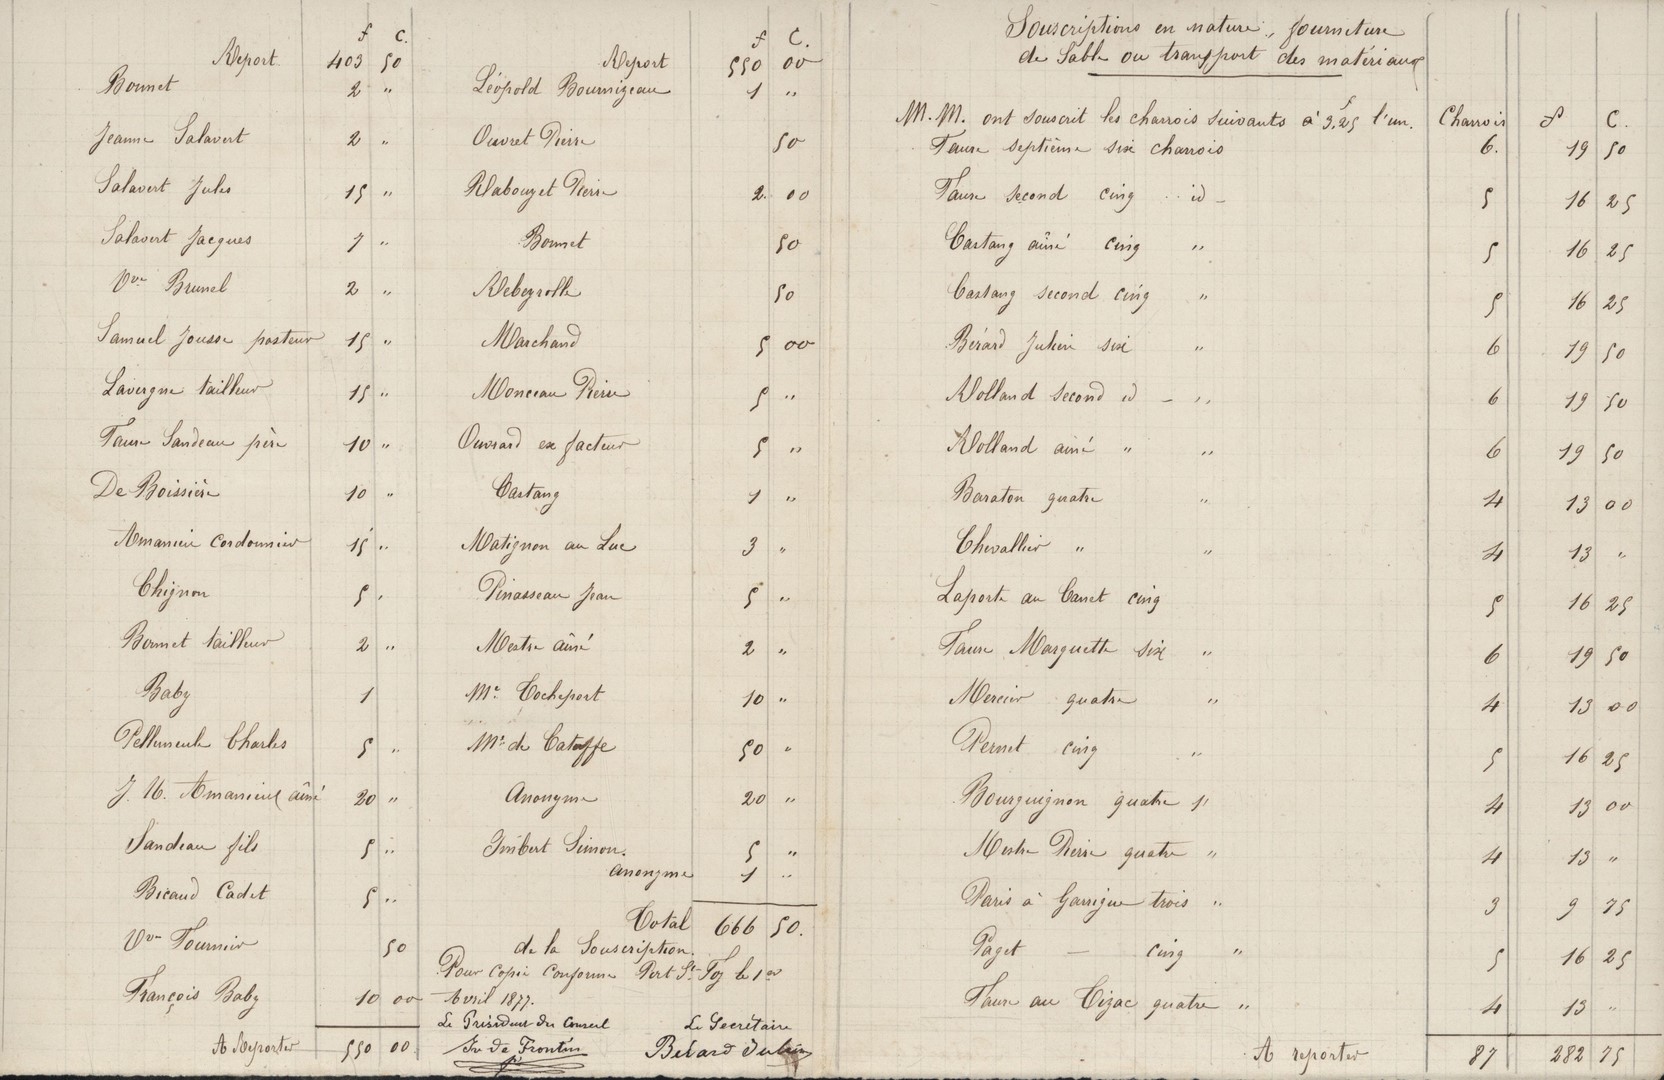 f c.
Report 403 50
Bonnet 2 "
Jeanne Salavert 2 "
Salavert Jules 15 "
Salavert Jacques 7 "
Vve Brunel 2 "
Samuel Jousse pasteur 15 "
Lavergne tailleur 15 "
Faure Sandeau père 10 "
De Boissière 10 "
Amanieu Cordonnier 15 "
Chignon 5 "
Bonnet tailleur 2 "
Baby 1
Charles 5 "
Amanieux aîné 20 "
Sandeau fils 5 "
Bicaud Cadet 5 "
Vve Fournier 50
François Baby 10 00
A Reporter 550 00
f C.
Report 550 00
Léopold Bournizeau 1 "
Ouvret Pierre 50
Rabouyet Pierre 2. 00
Bonnet 50
Rebeyrolle 50
Marchand 5 00
Monceau Pierre 5 "
Ouvrard ex facteur 5 "
Castang 1 "
Matignon au Luc 3 "
Pinasseau Jean 5 "
Mestre aîné 2 "
Mr Rocheport 10 "
Mr de 50 "
Anonyme 20 "
Imbert Simon. 5 "
Anonyme 1 "
Total 666 50.
de la Souscription.
Pour copie conforme Port Ste Foy le 1er
Avril 1877.
Le Président du Conseil Le Secrétaire
de Frontin Bérard Julien
Souscriptions en nature, fourniture
de Sable ou transport des matériaux
M.M. ont souscrit les charrois suivants à 3f,25 l'un. Charrois f C.
Faure septième six charrois 6. 19 50
Faure second cinq id - 5 16 25
Castang aîné cinq " 5 16 25
Castang second cinq " 5 16 25
Bérard Julien six " 6 19 50
Rolland second id - " 6 19 50
Rolland ainé " " 6 19 50
Baraton quatre " 4 13 00
Chevallier " " 4 13 "
Laporte au Canet cinq 5 16 25
Faure Marguette six " 6 19 50
Mercier quatre " 4 13 00
Pernet cinq " 5 16 25
Bourguignon quatre " 4 13 00
Mestre Pierre quatre " 4 13 "
Paris à Garrigue trois " 3 9 75
Paget - cinq " 5 16 25
Faure au Tizac quatre " 4 13 "
A reporter 87 282 75